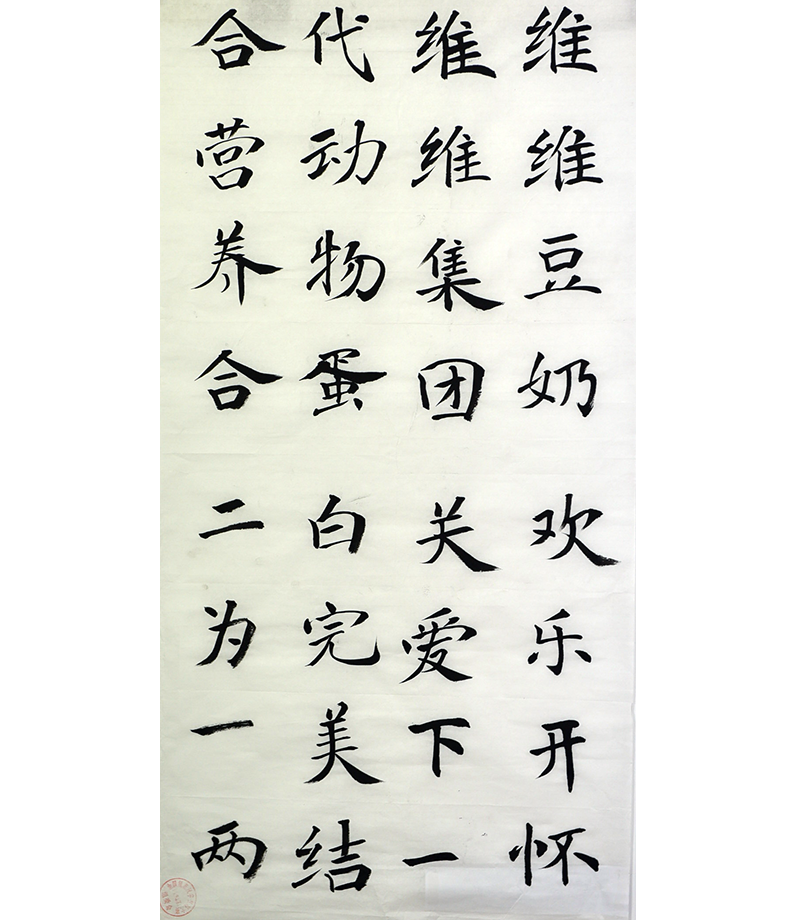 维维豆奶 欢乐开怀
维维集团 关爱下一
代动物蛋 白完美结
合营养合 二为一两